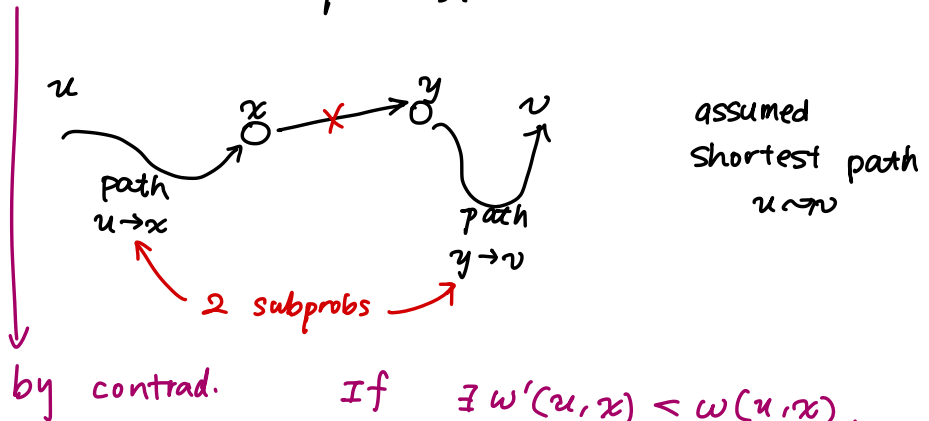 u
x
y
v
assumed
shortest path
u ⤳ v
path
u → x
path
y → v
2 subprobs
by contrad. If ∃ w'(u,x) < w(u,x).